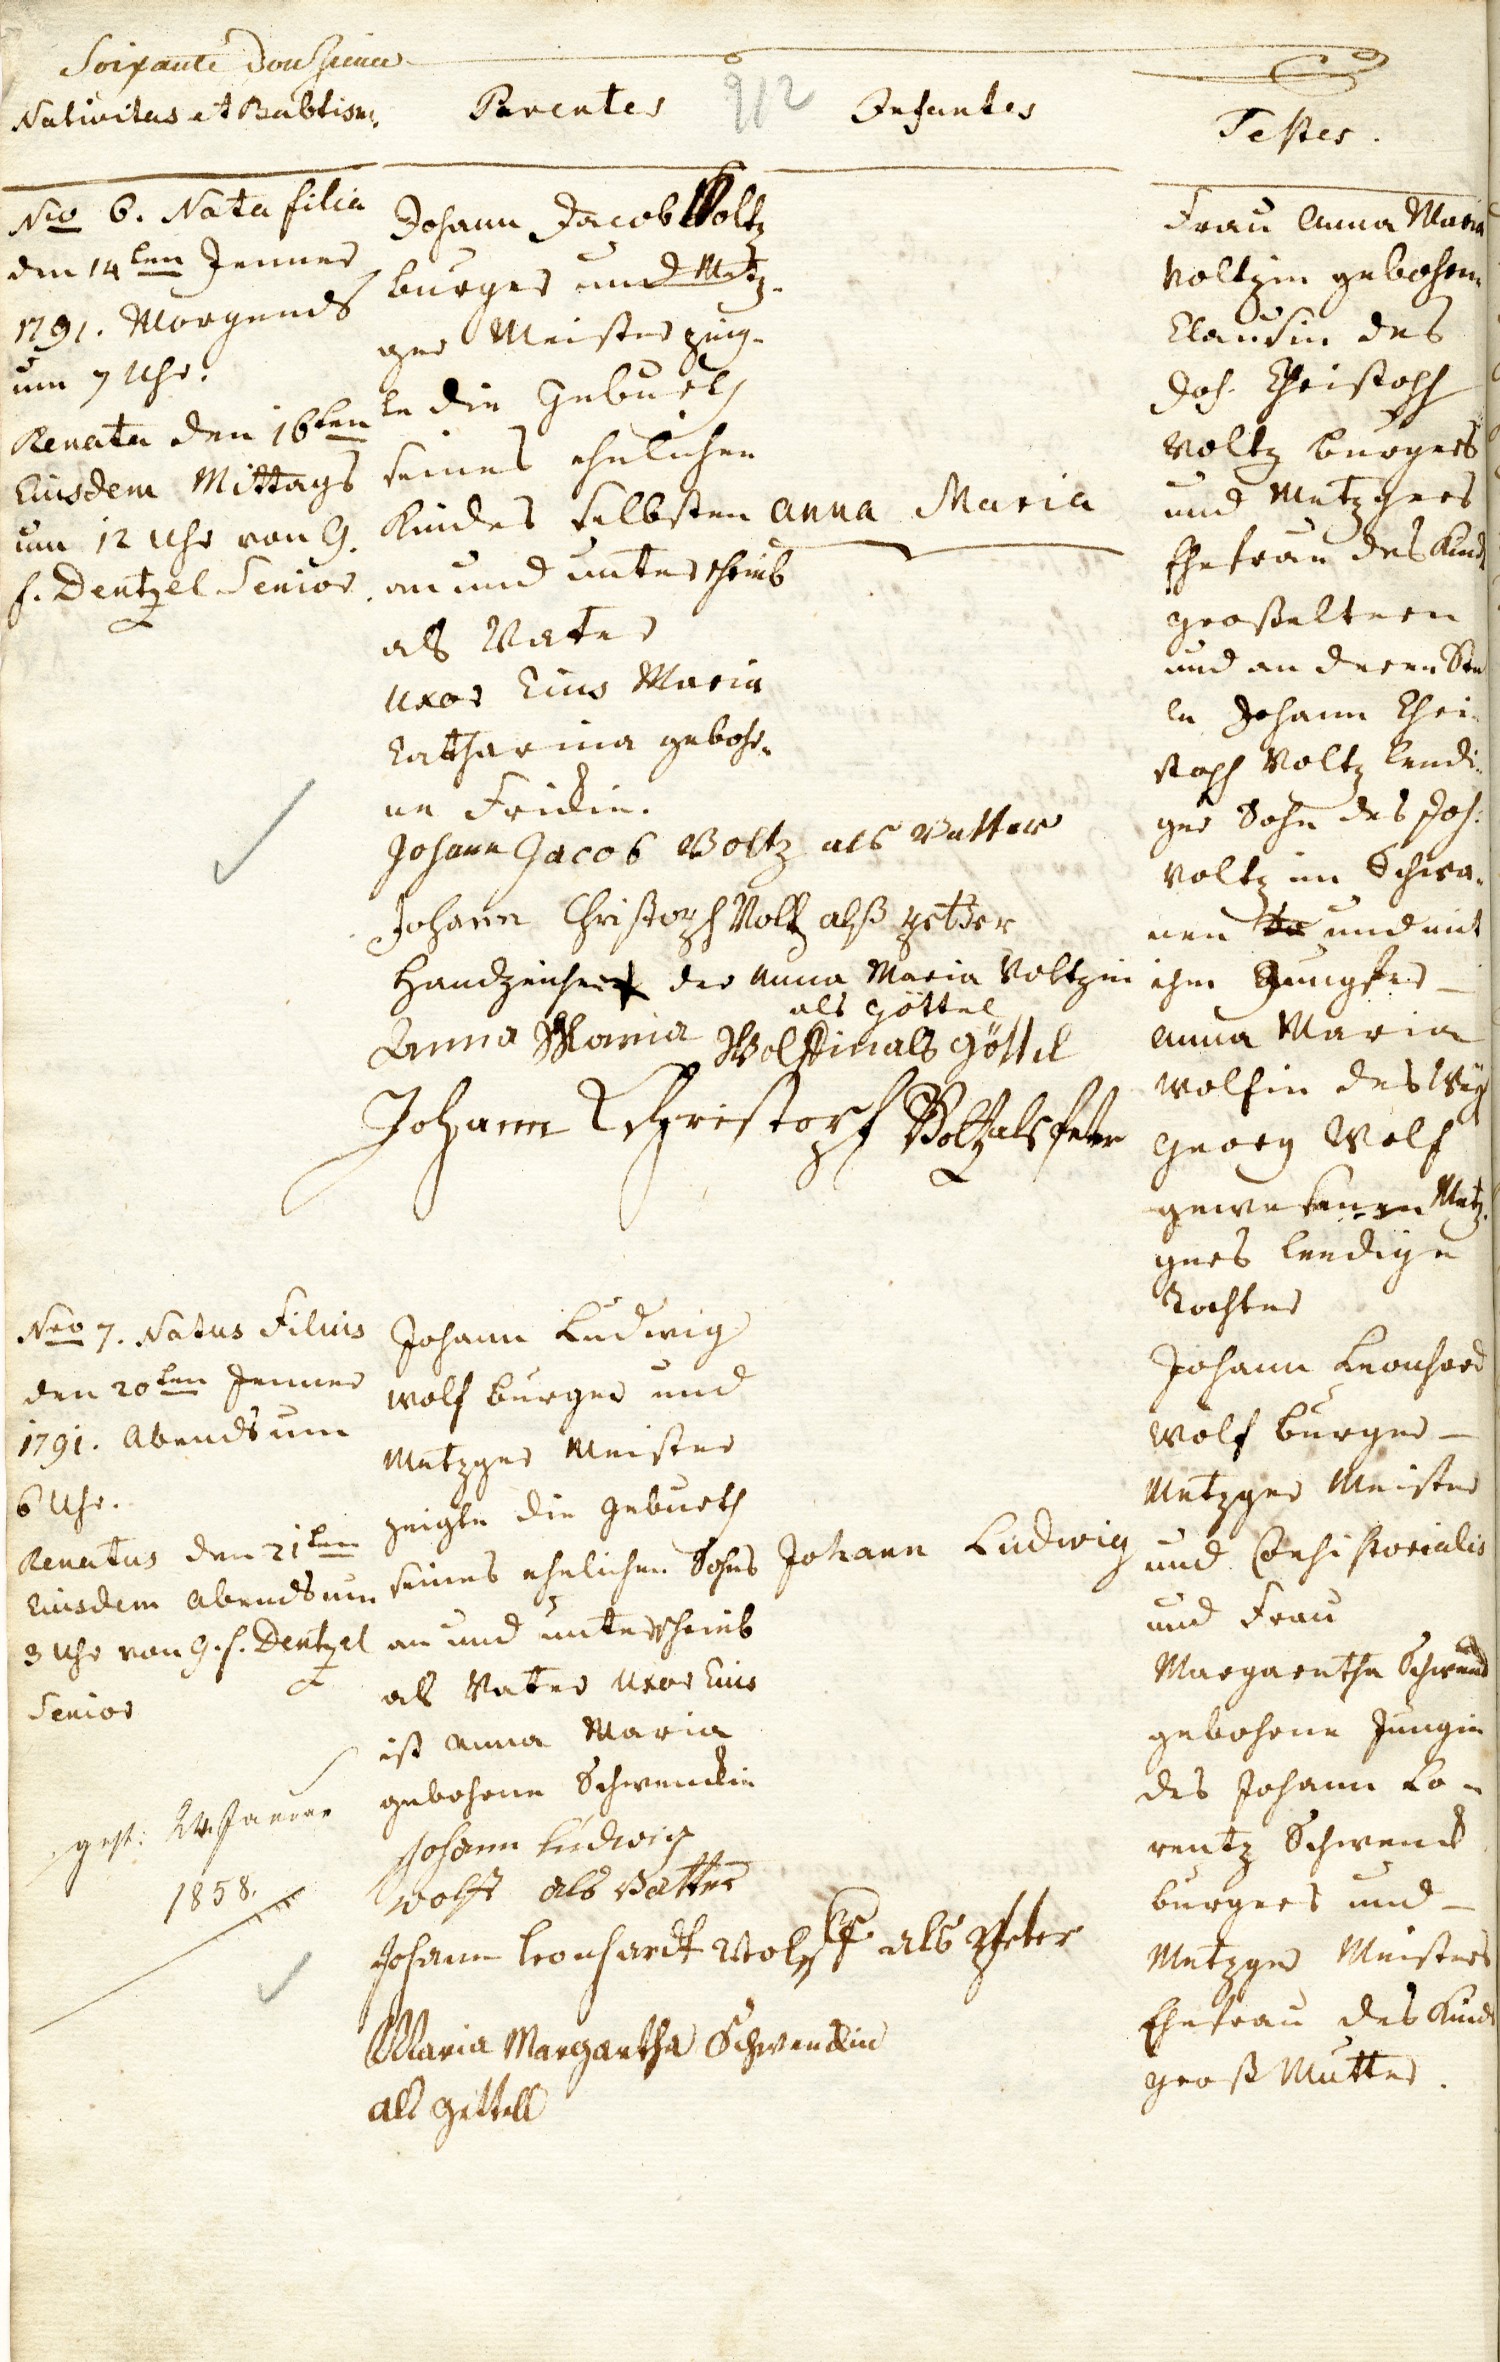 Soixante Douzieme
912
Nativitas et Babtism:
Parentes
Infantes
Testes.
Nro 6. Nata filia
den 14ten Jenner
1791. Morgends
um 7 Uhr.
Renata den 16ten
Eiusdem Mittags
um 12 Uhr von G.
f. Dentzel Senior.
Johann Jacob Voltz
burger und Metz-
ger Meister zeig-
te die Geburth
seines ehelichen
Kindes selbsten
an und unterschrieb
als Vater
Uxor Eius Maria
Catharina gebohr-
ne Fridin.
Anna Maria
Johann Jacob Voltz als Vatter
Johann Christoph Voltz alß petter
Handzeichen + der Anna Maria Voltzin
als Göttel
Anna Maria Wolffin als Göttel
Johann Christoph Voltz als peter
Frau Anna Maria
Voltzin gebohrne
Claudin des
Joh. Christoph
Voltz burgers
und Metzgers
Ehefrau des Kinds
großeltern
und an deren Stel
le Johann Chri-
stoph Voltz ledi-
ger Sohn des Joh:
Voltz im Schwa-
nen und mit
ihm Jungfer
Anna Maria
Wolfin des
Georg Wolf
gewesenen Metz-
gers ledige
Tochter
Nro 7. Natus Filius
den 20ten Jenner
1791. Abends um
6 Uhr.
Renatus den 21ten
Eiusdem Abends um
3 Uhr von G. f. Dentzel
Senior
gest: 24. Januar
1858.
Johann Ludwig
Wolf burger und
Metzger Meister
zeigte die Geburth
seines ehelichen Sohns
an und unterschrieb
als Vater Uxor Eius
ist Anna Maria
gebohrne Schwenckin
Johann Ludwig
Johann Ludwig
Wolff als Vatter
Johann Leonhardt Wolff als Pfeter
Maria Margaretha Schwenckin
als gettell
Johann Leonhard
Wolf burger
Metzger Meister
und Consistorialis
und Frau
Margaretha Schwenck
gebohrne Jungin
des Johann Lo-
rentz Schwenck
burgers und
Metzger Meisters
Ehefrau des Kinds
groß Mutter.